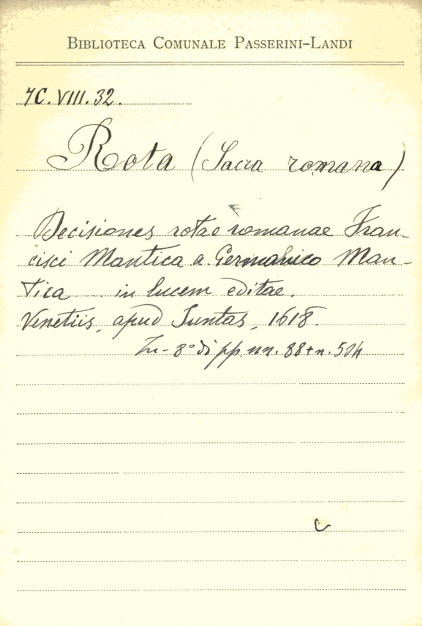 BIBLIOTECA COMUNALE PASSERINI-LANDI
4C.VIII.32.
Rota (Sacra romana)
Decisiones rotae romanae Fran-
cisci Mantica a Germanico Man-
tica in lucem editae.
Venetiis, apud Juntas, 1618.
In-8° di pp. nn. 88+n. 504
c